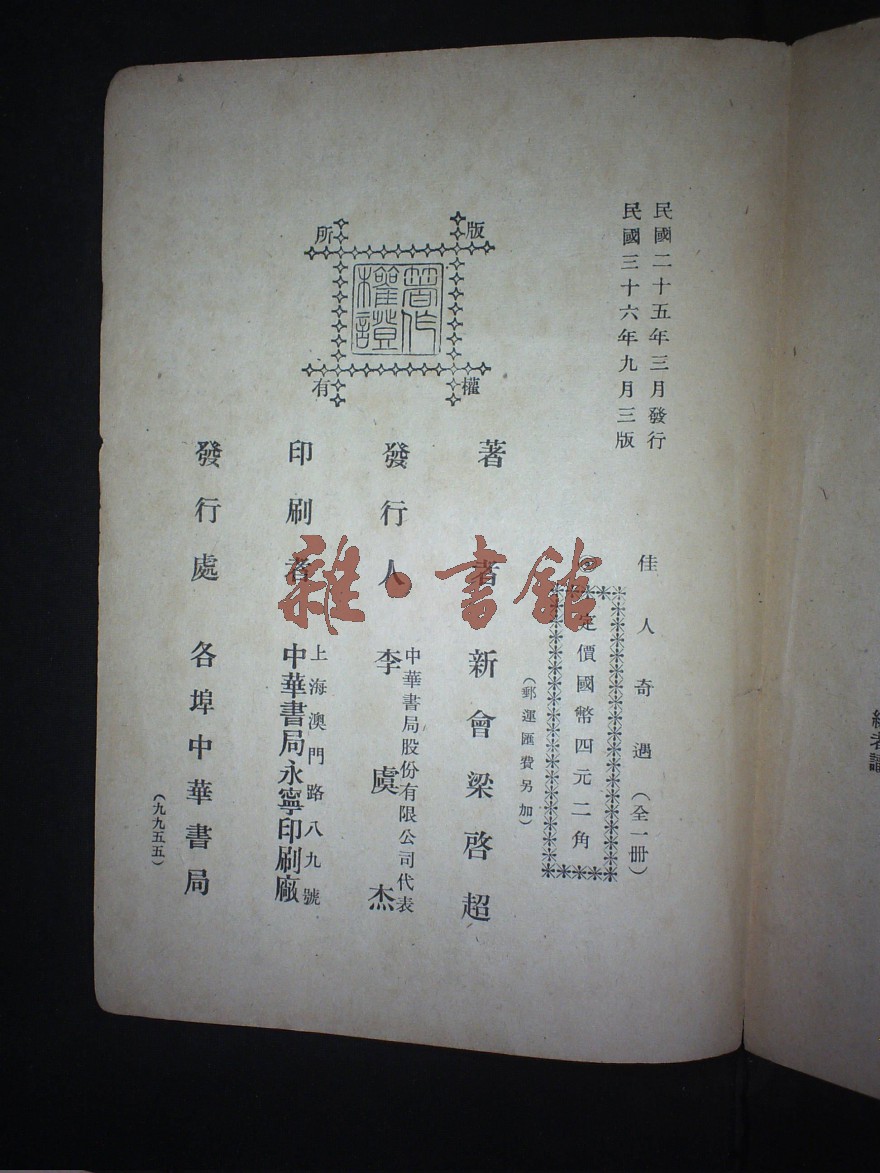 民國二十五年三月發行
民國三十六年九月三版
佳人奇遇（全一冊）
定價國幣四元二角
（郵運匯費另加）
著者 新會梁啓超
發行人 中華書局股份有限公司代表
李虞杰
印刷者 上海澳門路八九號
中華書局永寧印刷廠
發行處 各埠中華書局
（九九五五）
版權所有
著作權證
雜·書館